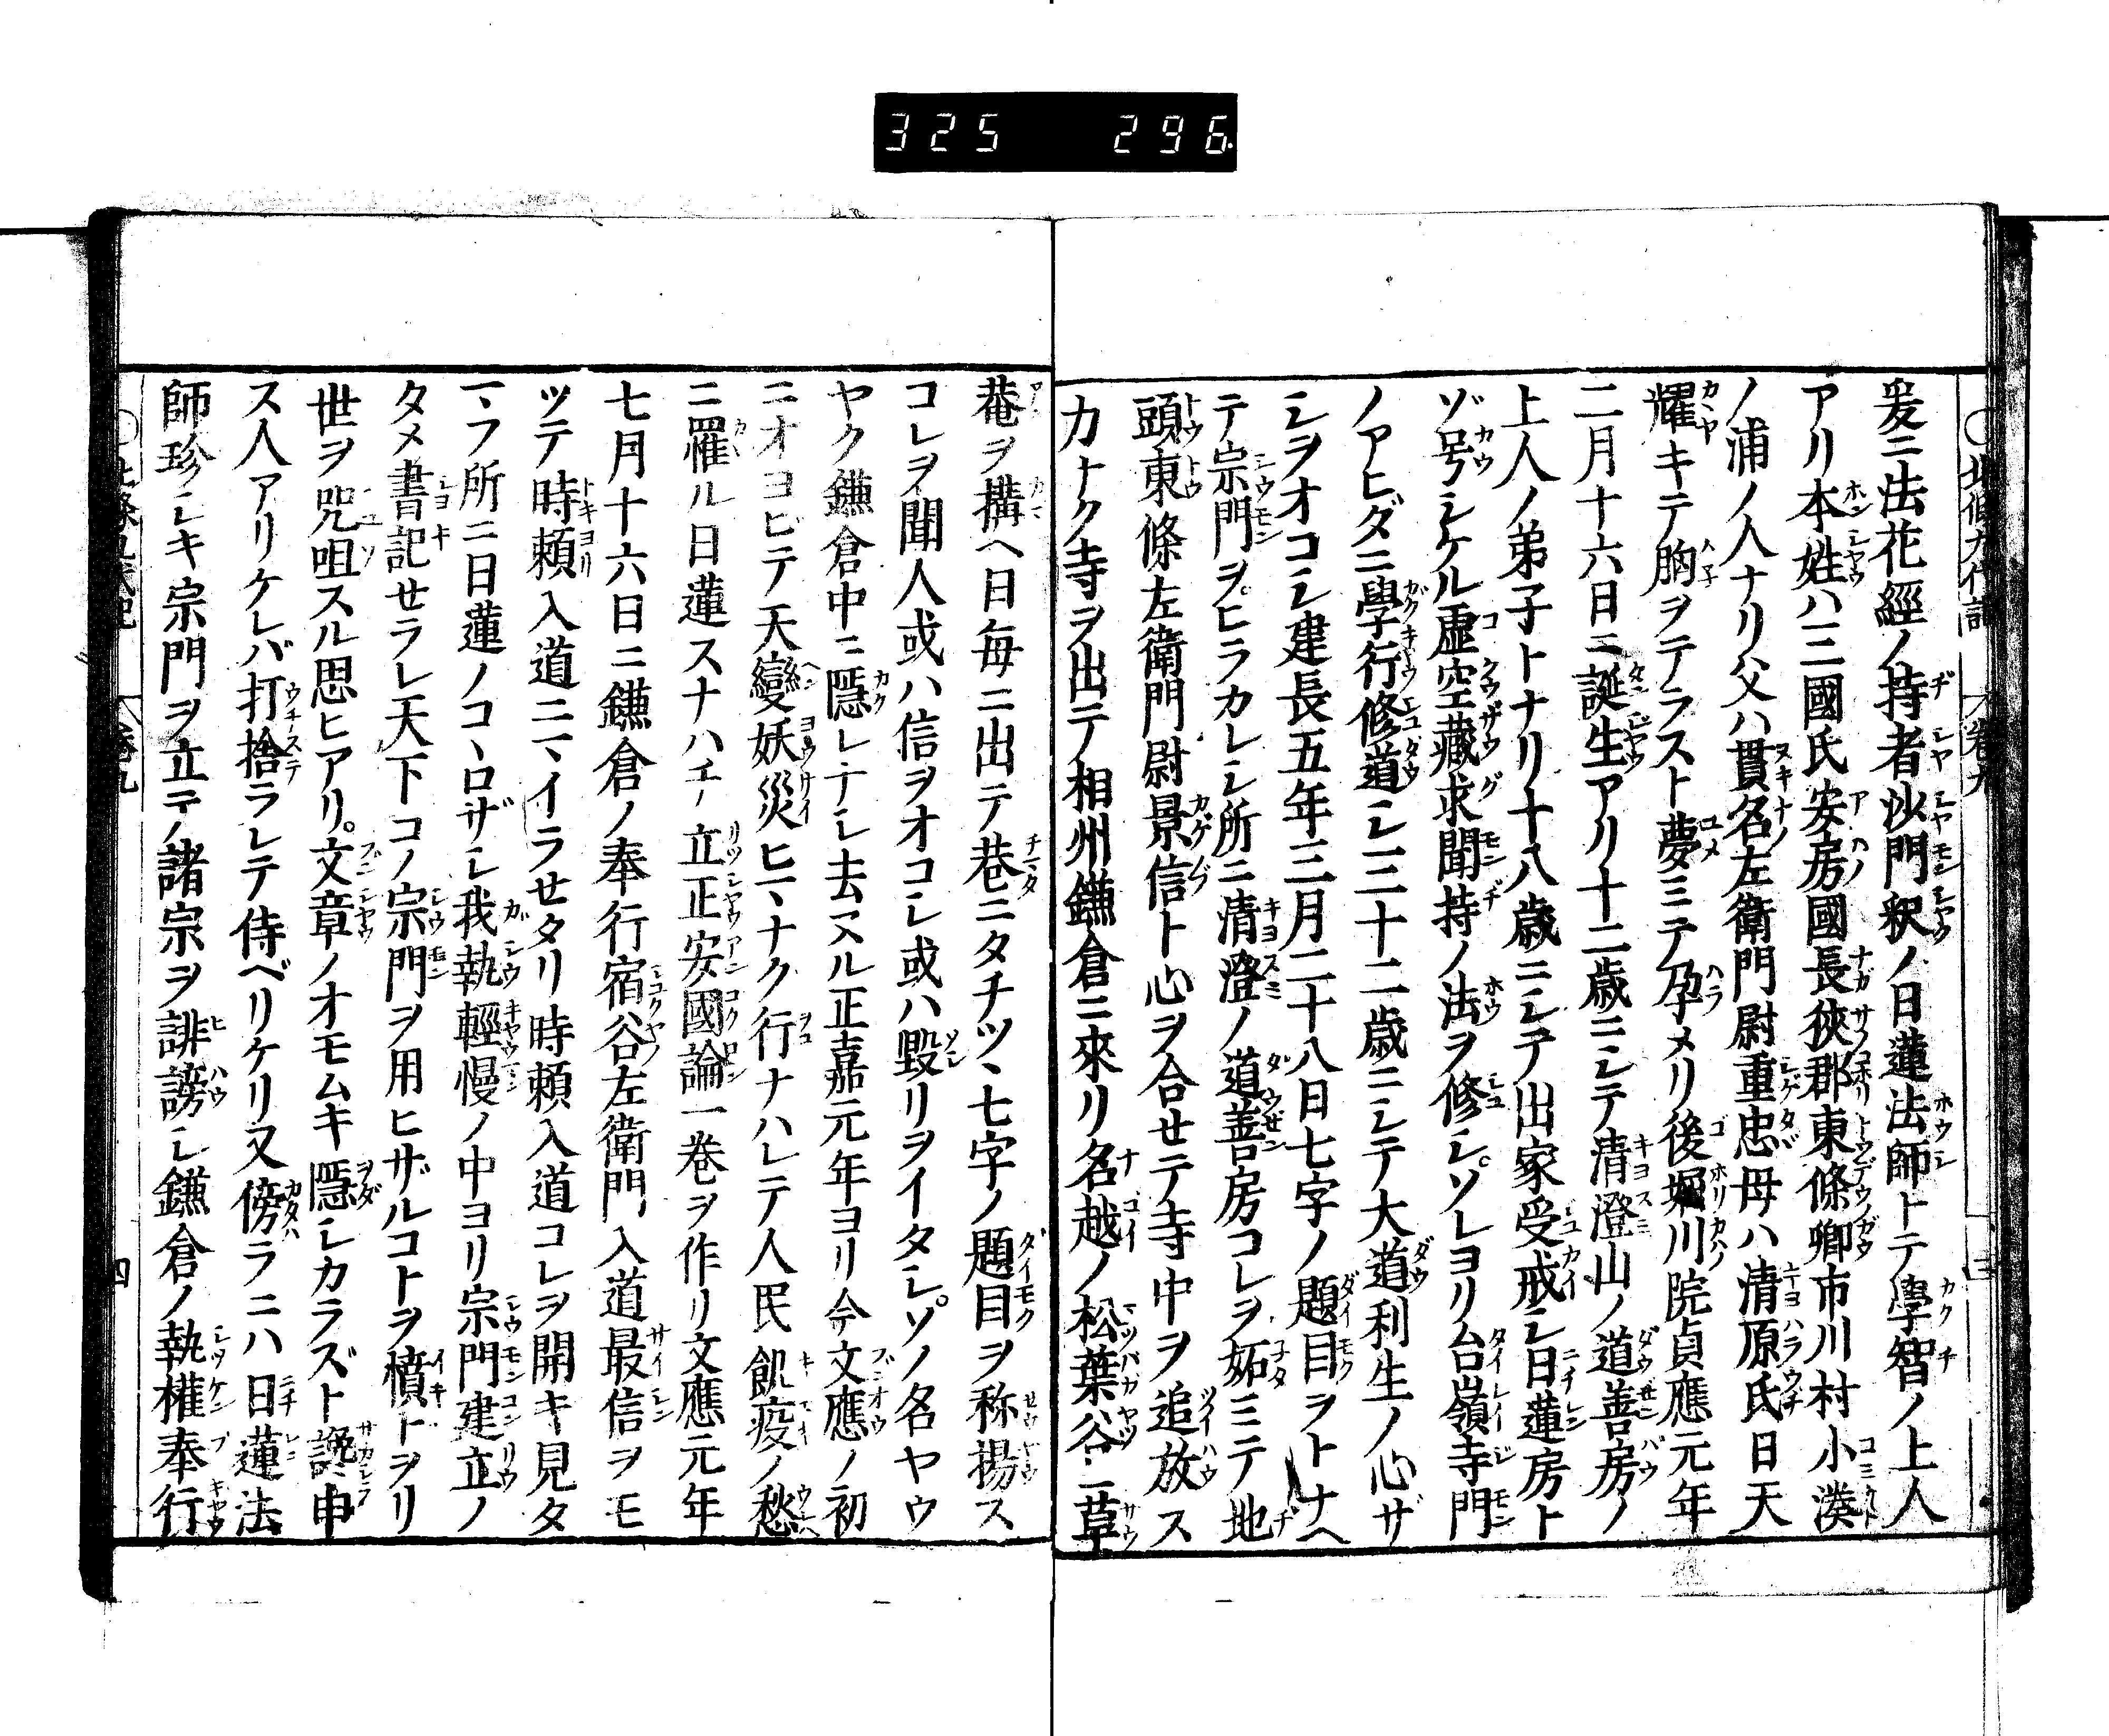 325 296
爰ニ法花經ノ持者沙門釈ノ日蓮法師トテ學智ノ上人
アリ本姓ハ三國氏安房國長狹郡東條卿市川村小湊
ノ浦ノ人ナリ父ハ貫名左衛門尉重忠母ハ清原氏日天
耀キテ胸ヲテラスト夢ミテ孕メリ後堀川院貞應元年
二月十六日ニ誕生アリ十二歳ニシテ清澄山ノ道善房ノ
上人ノ弟子トナリ十八歳ニシテ出家受戒シ日蓮房ト
ゾ号シケル虚空藏求聞持ノ法ヲ修シソレヨリ台嶺寺門
ノアヒダニ學行修道シ三十二歳ニシテ大道利生ノ心ザ
シヲオコシ建長五年三月二十八日七字ノ題目ヲトナヘ
テ宗門ヲヒラカレシ所ニ清澄ノ道善房コレヲ妬ミテ地
頭東條左衛門尉景信ト心ヲ合セテ寺中ヲ追放ス
力ナク寺ヲ出テ相州鎌倉ニ來リ名越ノ松葉谷ニ草
菴ヲ構ヘ日毎ニ出テ巷ニタチツヽ七字ノ題目ヲ称揚ス
コレヲ聞人或ハ信ヲオコシ或ハ毀リヲイタシソノ名ヤウ
ヤク鎌倉中ニ隠レナシ去ヌル正嘉元年ヨリ今文應ノ初
ニオヨビテ天變妖災ヒマナク行ナハレテ人民飢疫ノ愁
ニ罹ル日蓮スナハチ立正安國論一巻ヲ作リ文應元年
七月十六日ニ鎌倉ノ奉行宿谷左衛門入道最信ヲモ
ツテ時頼入道ニマイラセタリ時頼入道コレヲ開キ見タ
マフ所ニ日蓮ノコヽロザシ我執輕慢ノ中ヨリ宗門建立ノ
タメ書記セラレ天下コノ宗門ヲ用ヒザルコトヲ憤トヲリ
世ヲ咒咀スル思ヒアリ文章ノオモムキ隠シカラズト讒申
ス人アリケレバ打捨ラレテ侍ベリケリ又傍ラニハ日蓮法
師珍シキ宗門ヲ立テ諸宗ヲ誹謗シ鎌倉ノ執權奉行
北條九代記 卷九 四